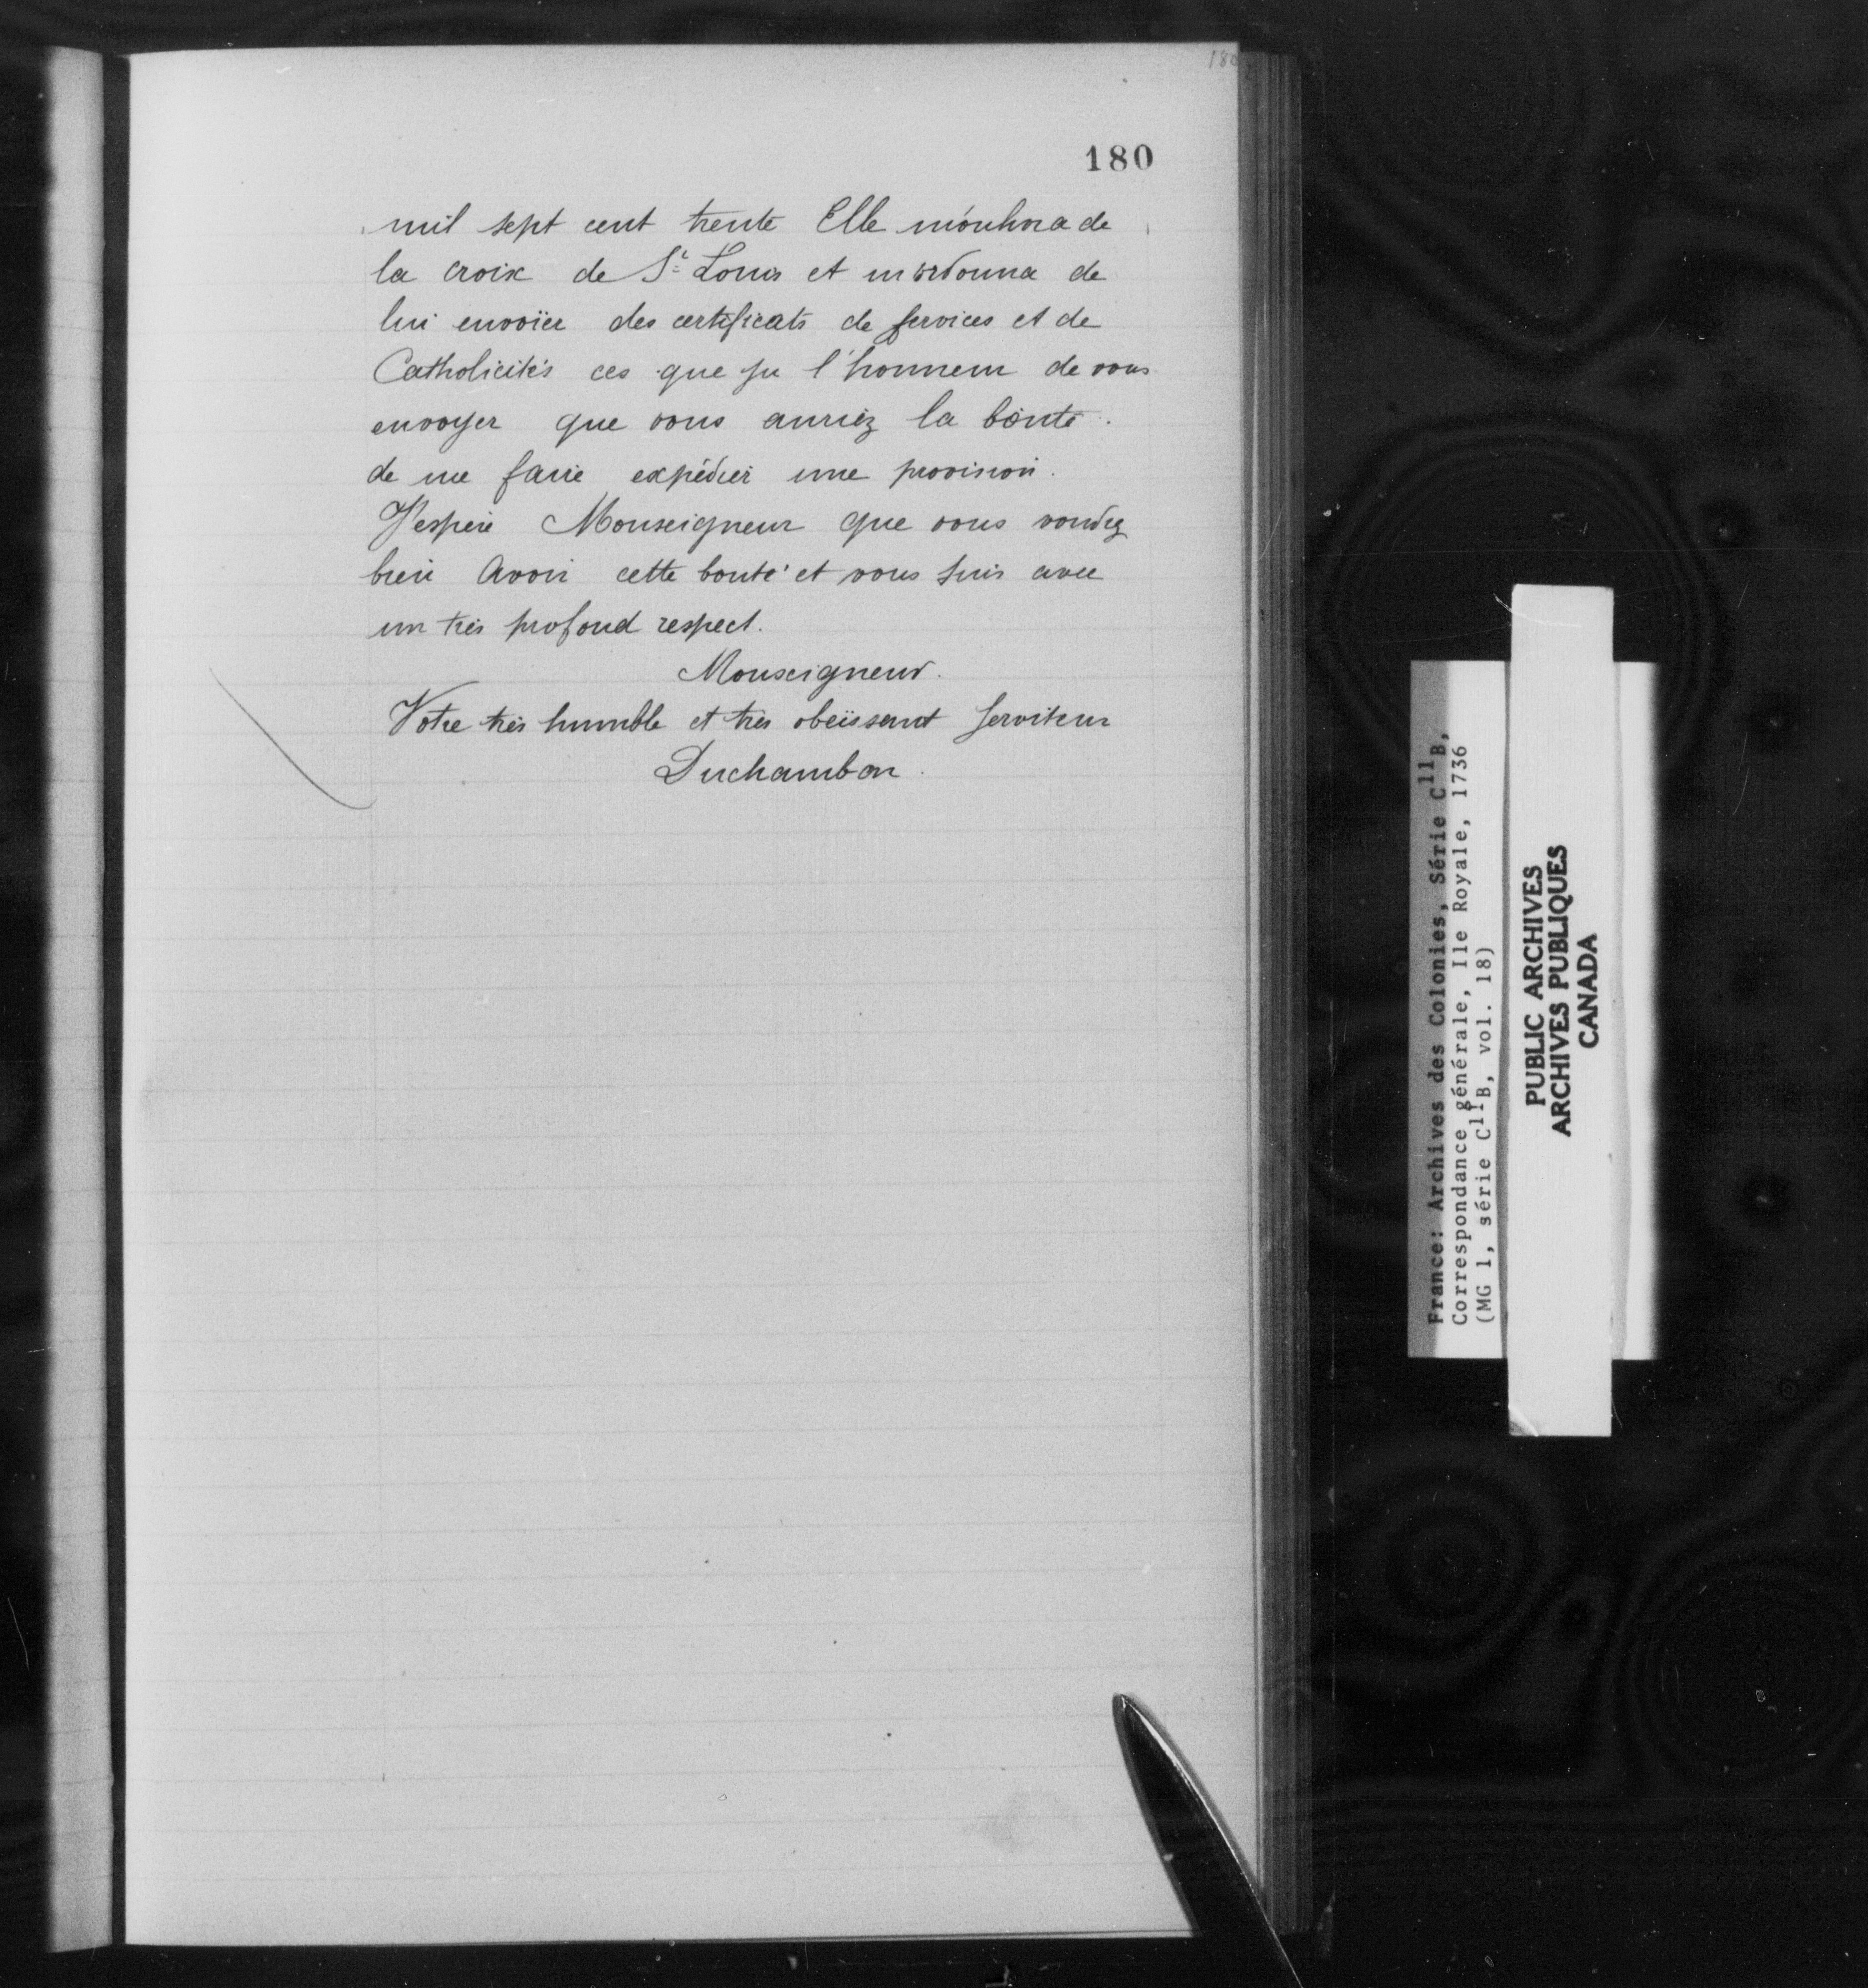 180
180
mil sept cent trente Elle m'onhora de
la croix de St Louis et m'ordonna de
lui envoïer des certificats de services et de
Catholicités ces que jù l'honneur de vous
envoyer que vous auriéz la bonté.
de me faire expédier une provision.
J'espere Monseigneur que vous voudrez
bien avoir cette bonté et vous suis avec
un très profond respect.
Monseigneur.
Votre très humble et très obeïssant serviteur
Duchambon.
France: Archives des Colonies, Série C11B,
Correspondance générale, Ile Royale, 1736
(MG 1, série C11B, vol. 18)
PUBLIC ARCHIVES
ARCHIVES PUBLIQUES
CANADA